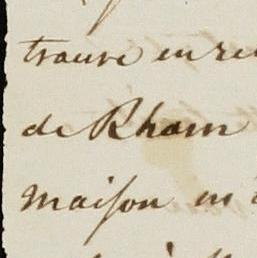 trouve en re
de Rham
maison en